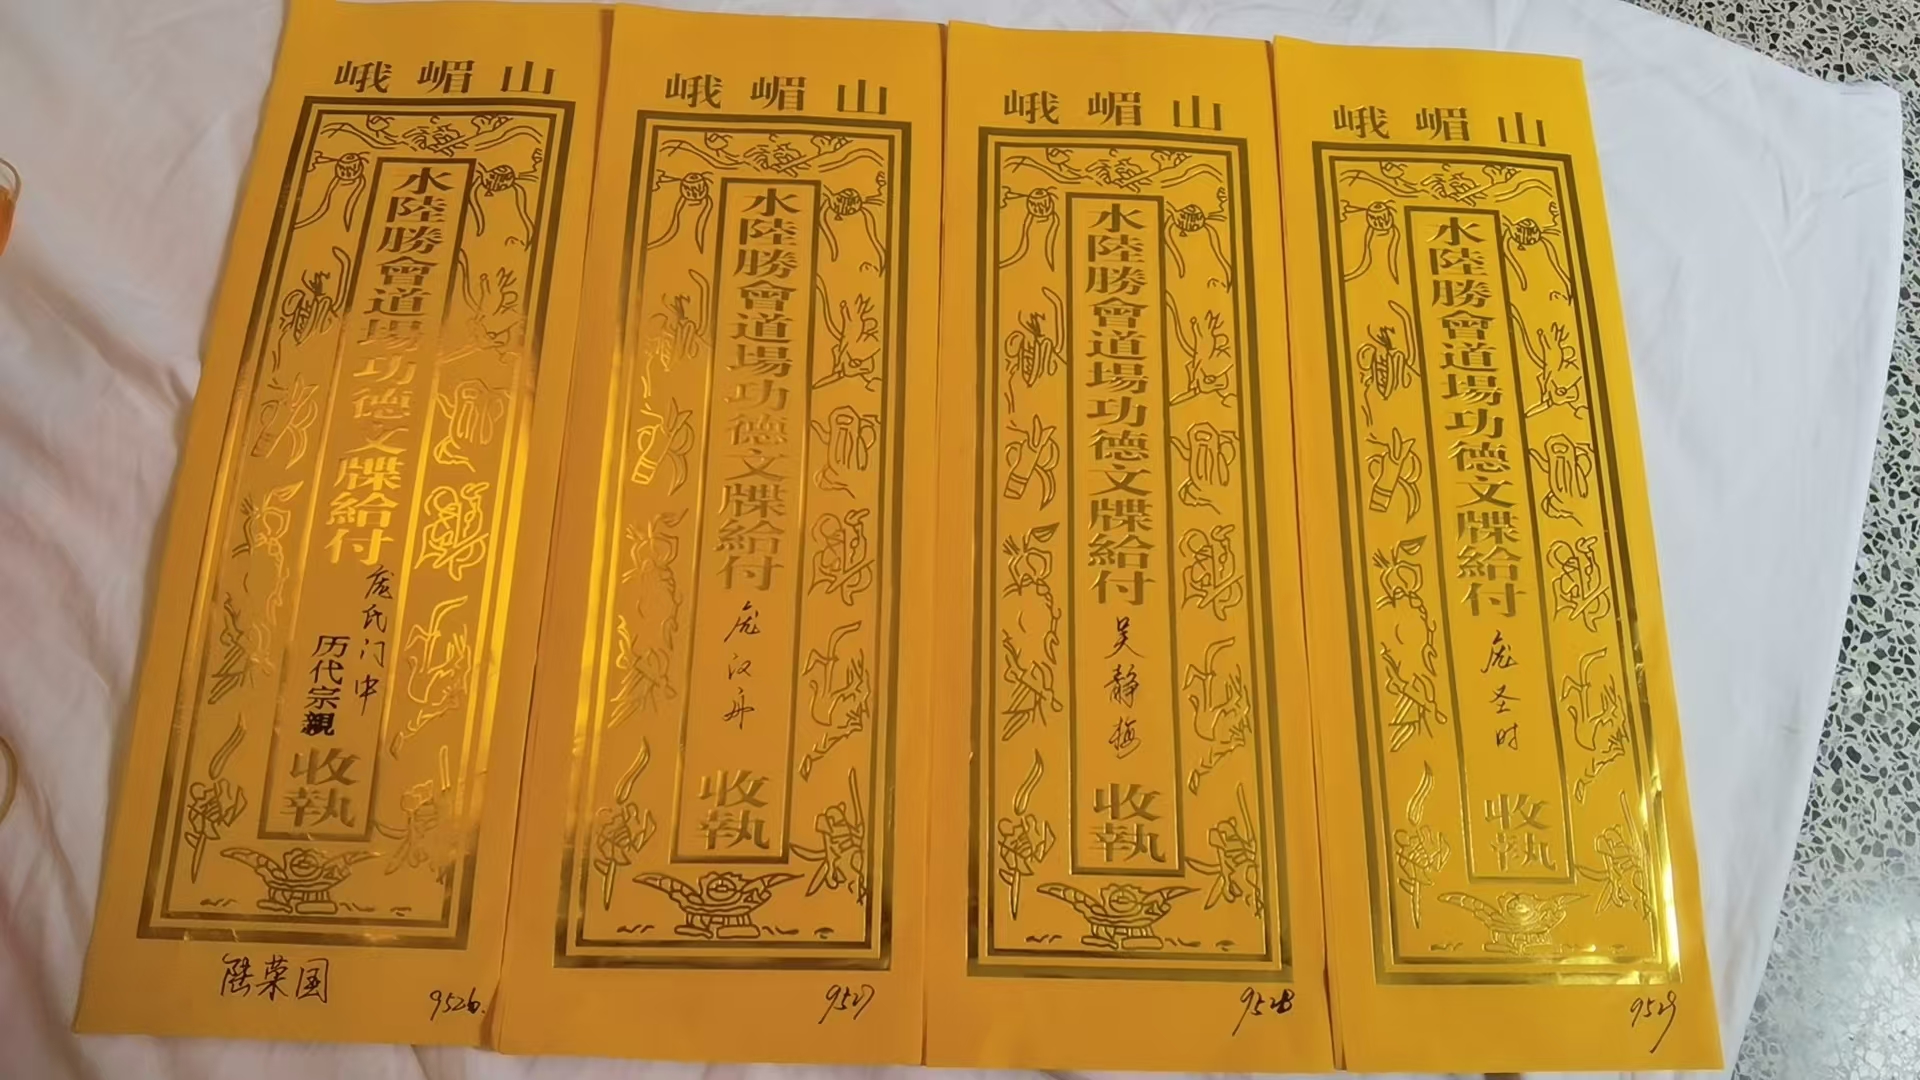 峨嵋山
水陸勝會道場功德文牒給付
庞氏门中
历代宗親
收執
陆荣国
9526.
峨嵋山
水陸勝會道場功德文牒給付
庞汉舟
收執
9527
峨嵋山
水陸勝會道場功德文牒給付
吴静梅
收執
9528
峨嵋山
水陸勝會道場功德文牒給付
庞圣时
收執
9529